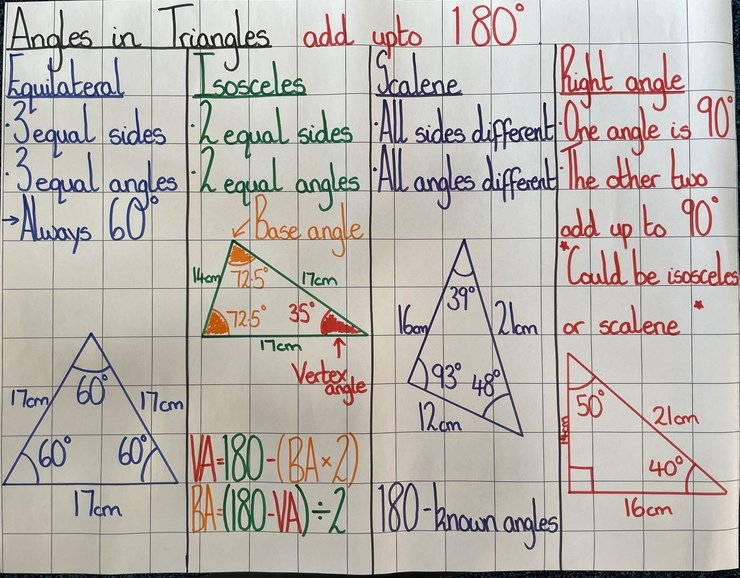 Angles in Triangles add upto 180°
Equilateral
·3 equal sides
·3 equal angles
→Always 60°
60°
17cm
17cm
60°
60°
17cm
Isosceles
·2 equal sides
·2 equal angles
Base angle
14cm
72.5°
17cm
72.5°
35°
17cm
Vertex
angle
VA=180-(BA×2)
BA=(180-VA)÷2
Scalene
·All sides different
·All angles different
39°
16cm
21cm
93°
48°
12cm
180-known angles
Right angle
·One angle is 90°
·The other two
add up to 90°
*Could be isosceles
or scalene *
50°
21cm
40°
16cm